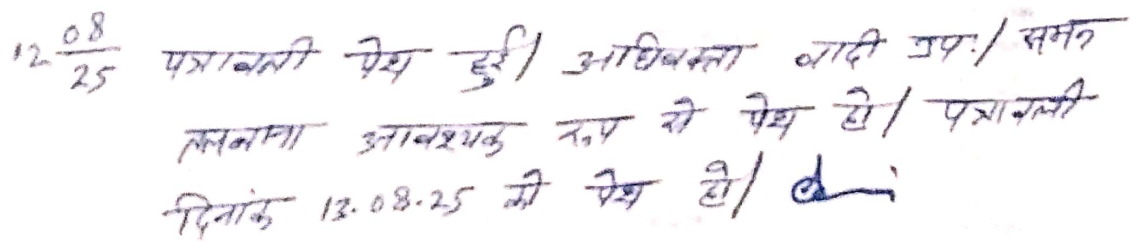 12 08/25 पत्रावली पेश हुई। अधिवक्ता वादी उप.। समन
तलवाना आवश्यक रूप से पेश हो। पत्रावली
दिनांक 13.08.25 को पेश हो।